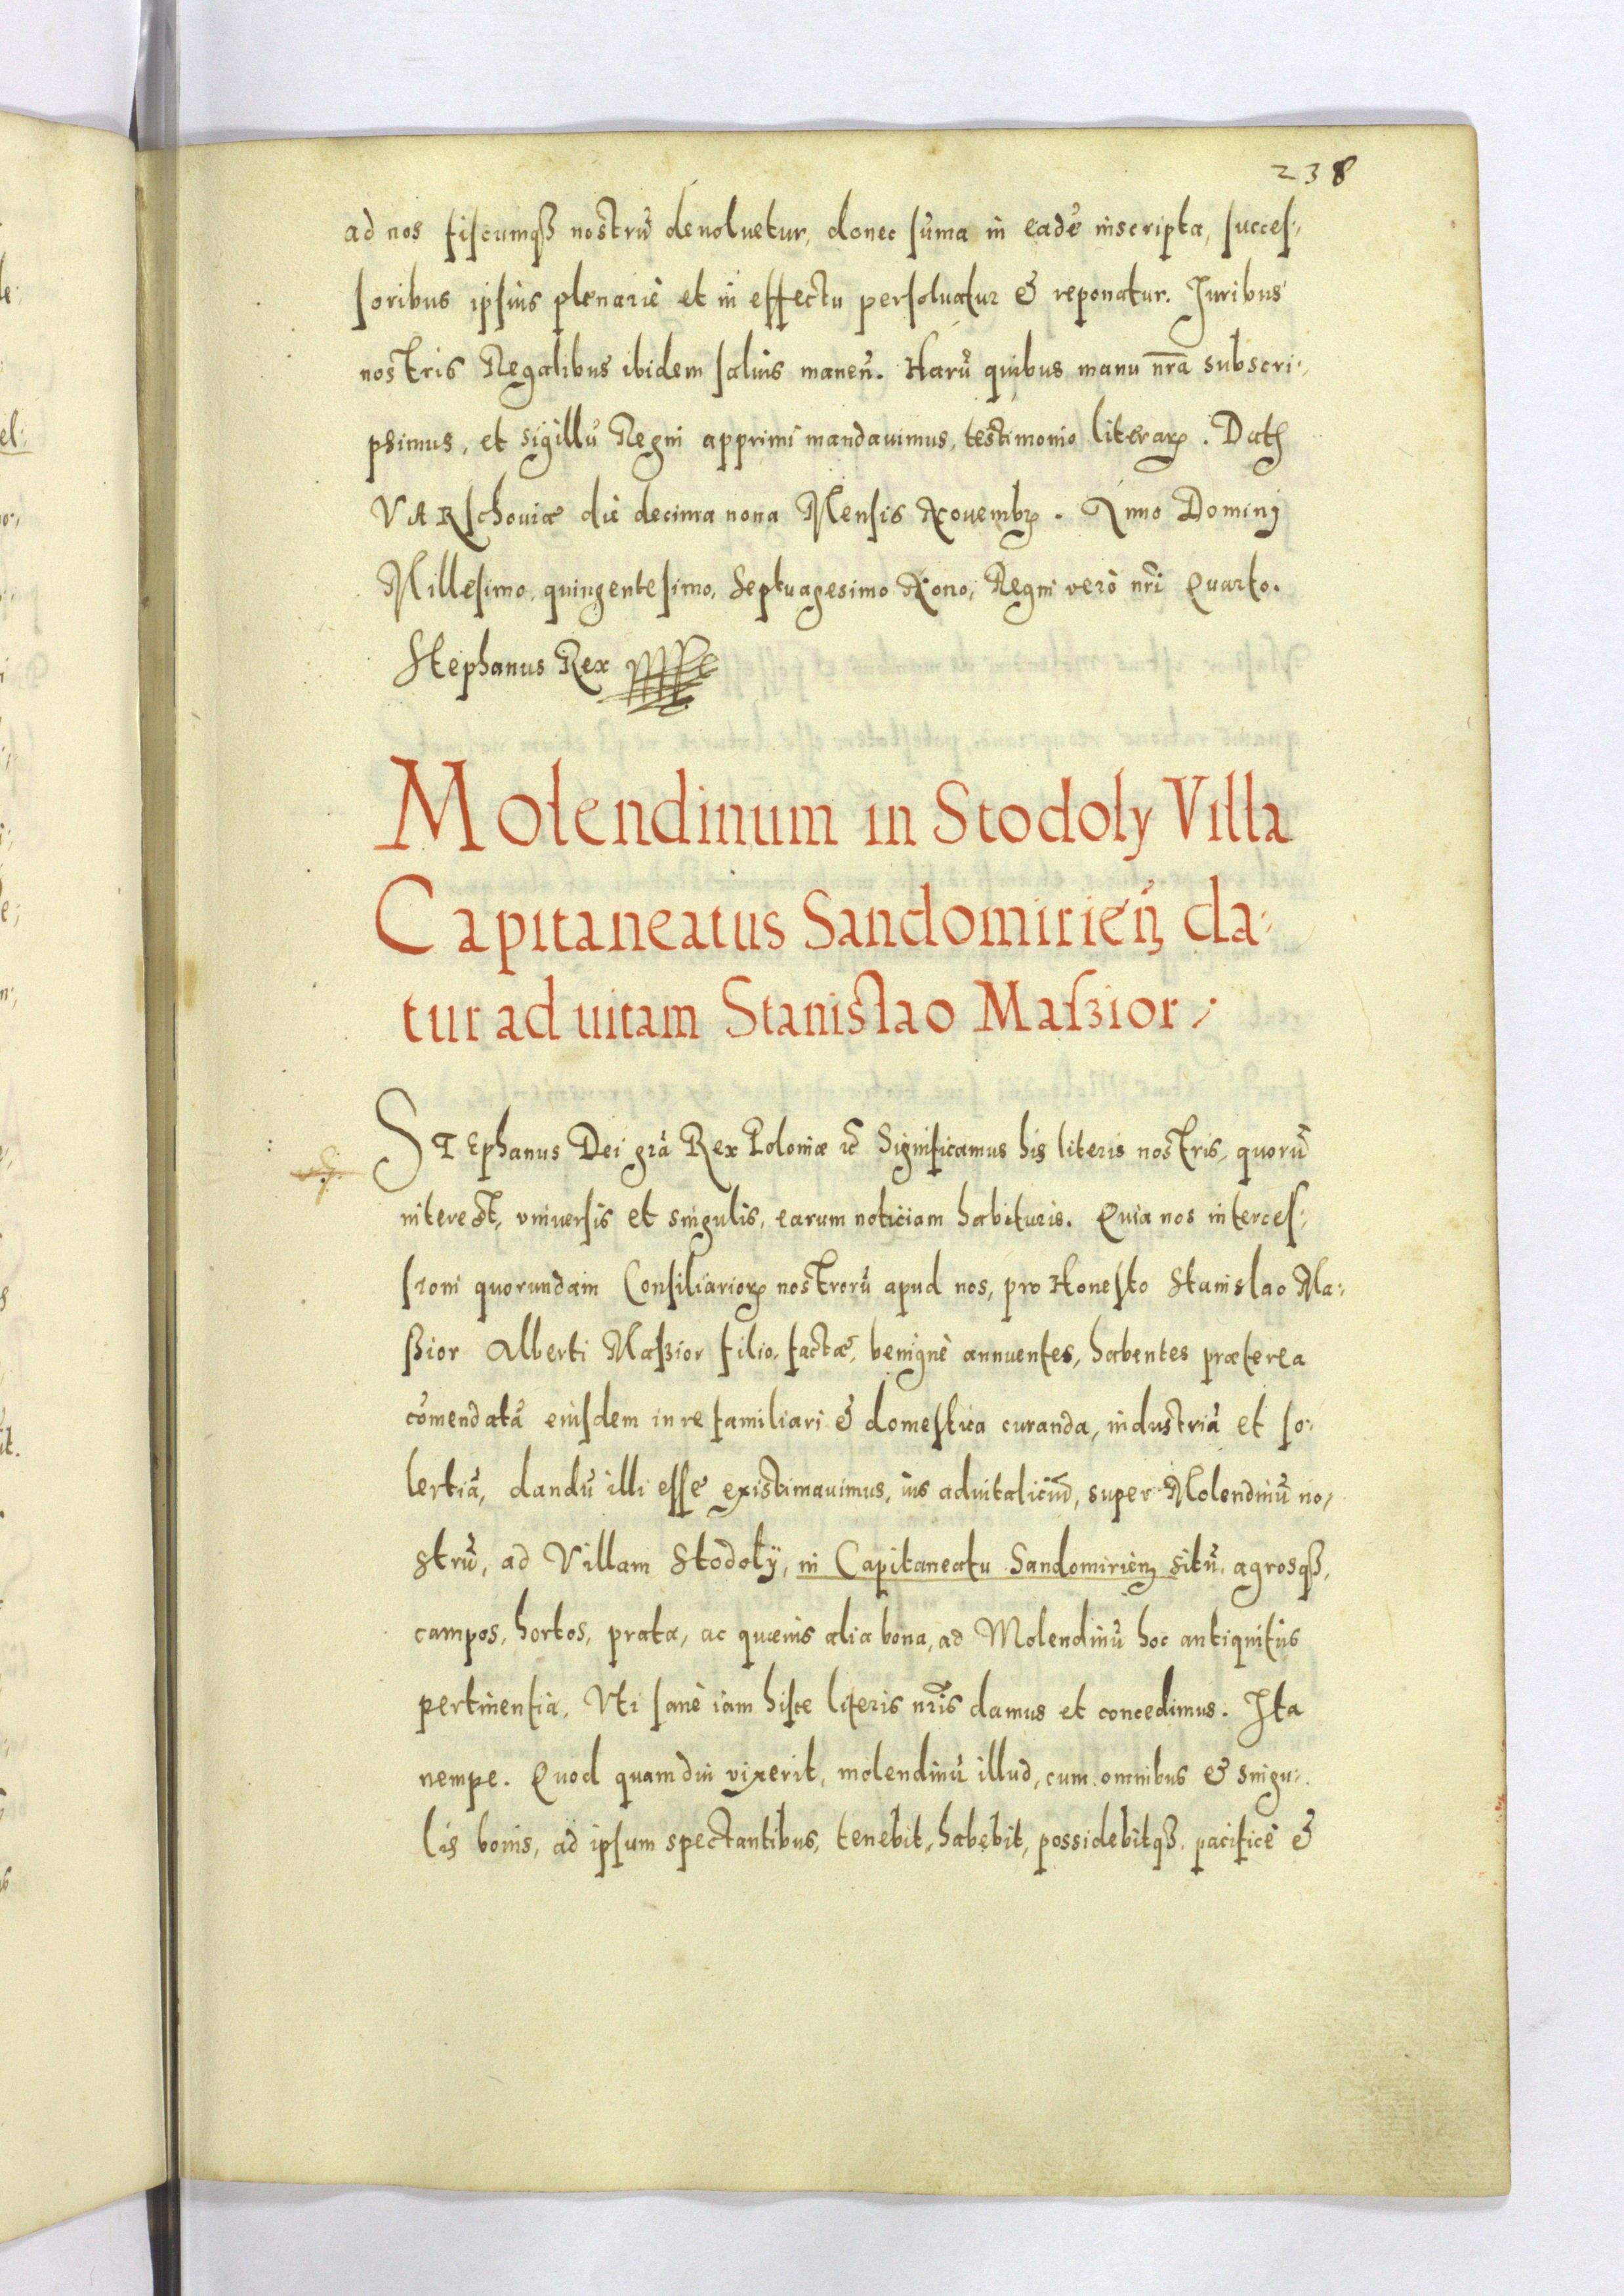 238
ad nos fiscumq₃ nostrū devoluetur, donec sūma in eadē inscripta, succes-
soribus ipsius plenariè et in effectu persoluatur & reponatur. Iuribus
nostris Regalibus ibidem saluis maneñ. Harū quibus manu nr̄a subscri-
psimus, et sigillū Regni apprimi mandauimus, testimonio literaꝝ. Datꝭ
VARschouiæ die decima nona Mensis Nouembꝝ. Anno Dominj
Millesimo, quingentesimo, Septuagesimo Nono, Regni verò nr̄i Quarto.
Stephanus Rex
Molendinum in Stodoly Villa
Capitaneatus Sandomirieñ da-
tur ad uitam Stanislao Maſzior
STEphanus Dei gr̄a Rex Poloniæ ꝛc̄ Significamus his literis nostris, quorū
interest, vniuersis et singulis, earum noticiam habituris. Quia nos interces-
sioni quorundam Consiliarioꝝ nostrorū apud nos, pro Honesto Stanislao Ma-
ßior Alberti Maſzior filio, factæ, benignè annuentes, habentes præterea
cōmendatā eiusdem in re familiari & domestica curanda, industriā et so-
lertiā, dandū illi esse existimauimus, ius aduitaliciū, super Molendinū no-
strū, ad Villam Stodoły, in Capitaneatu Sandomirieñ situ, agrosq₃,
campos, hortos, prata, ac quæuis alia bona, ad Molendinū hoc antiquitùs
pertinentia, Vti sanè iam hisce literis nr̄is damus et concedimus. Ita
nempe. Quod quamdiu vixerit, molendinū illud, cum omnibus & singu-
lis bonis, ad ipsum spectantibus, tenebit, habebit, possidebitq₃ pacificè &